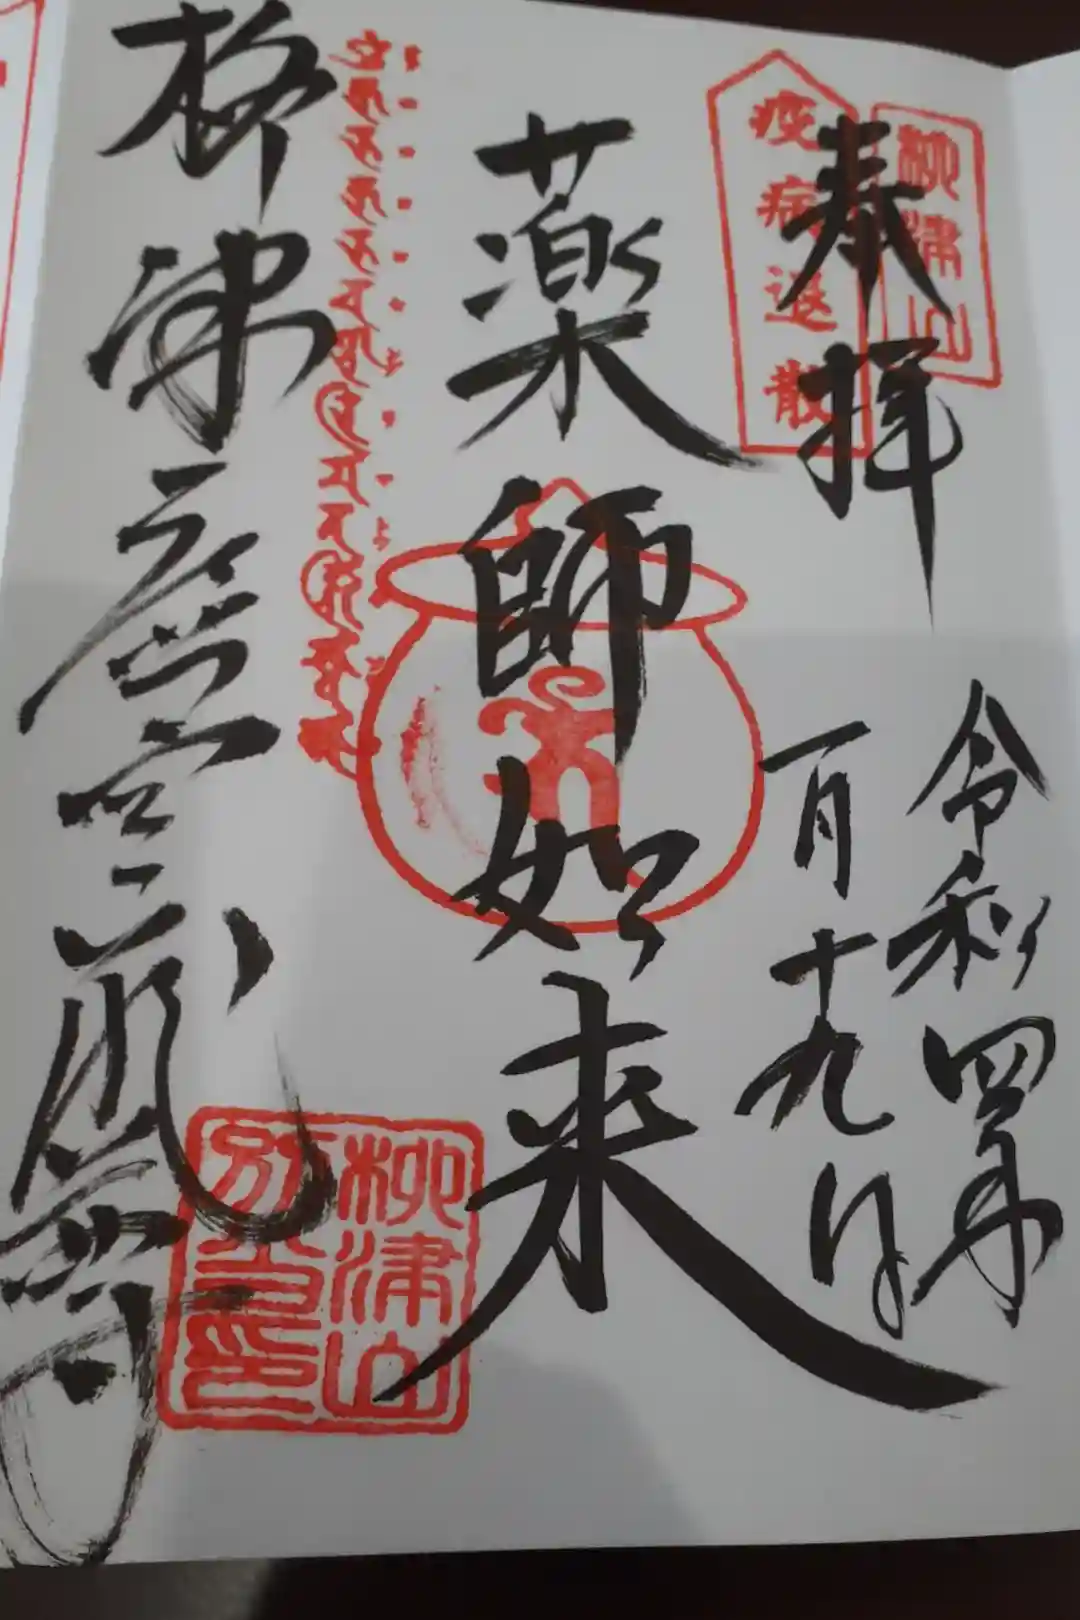 奉拝
柳津山
疫病退散
令和四年
一月十九日
薬師如来
柳津虚空蔵尊
柳津山
別當